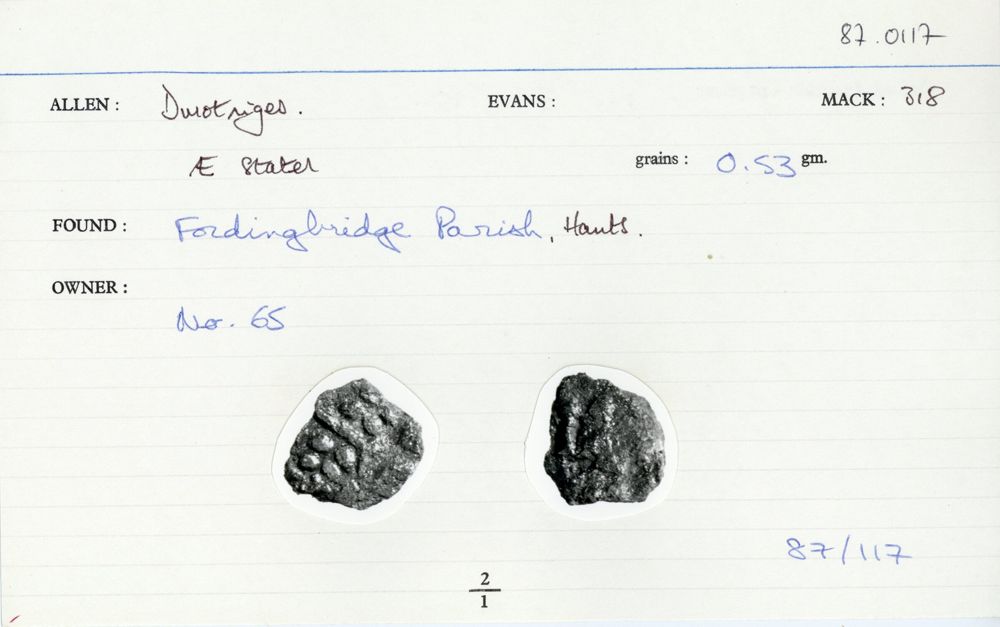 87.0117
ALLEN: Durotriges. EVANS: MACK: 318
Æ Stater grains: 0.53 gm.
FOUND: Fordingbridge Parish, Hants.
OWNER:
No. 65
87/117
2
1